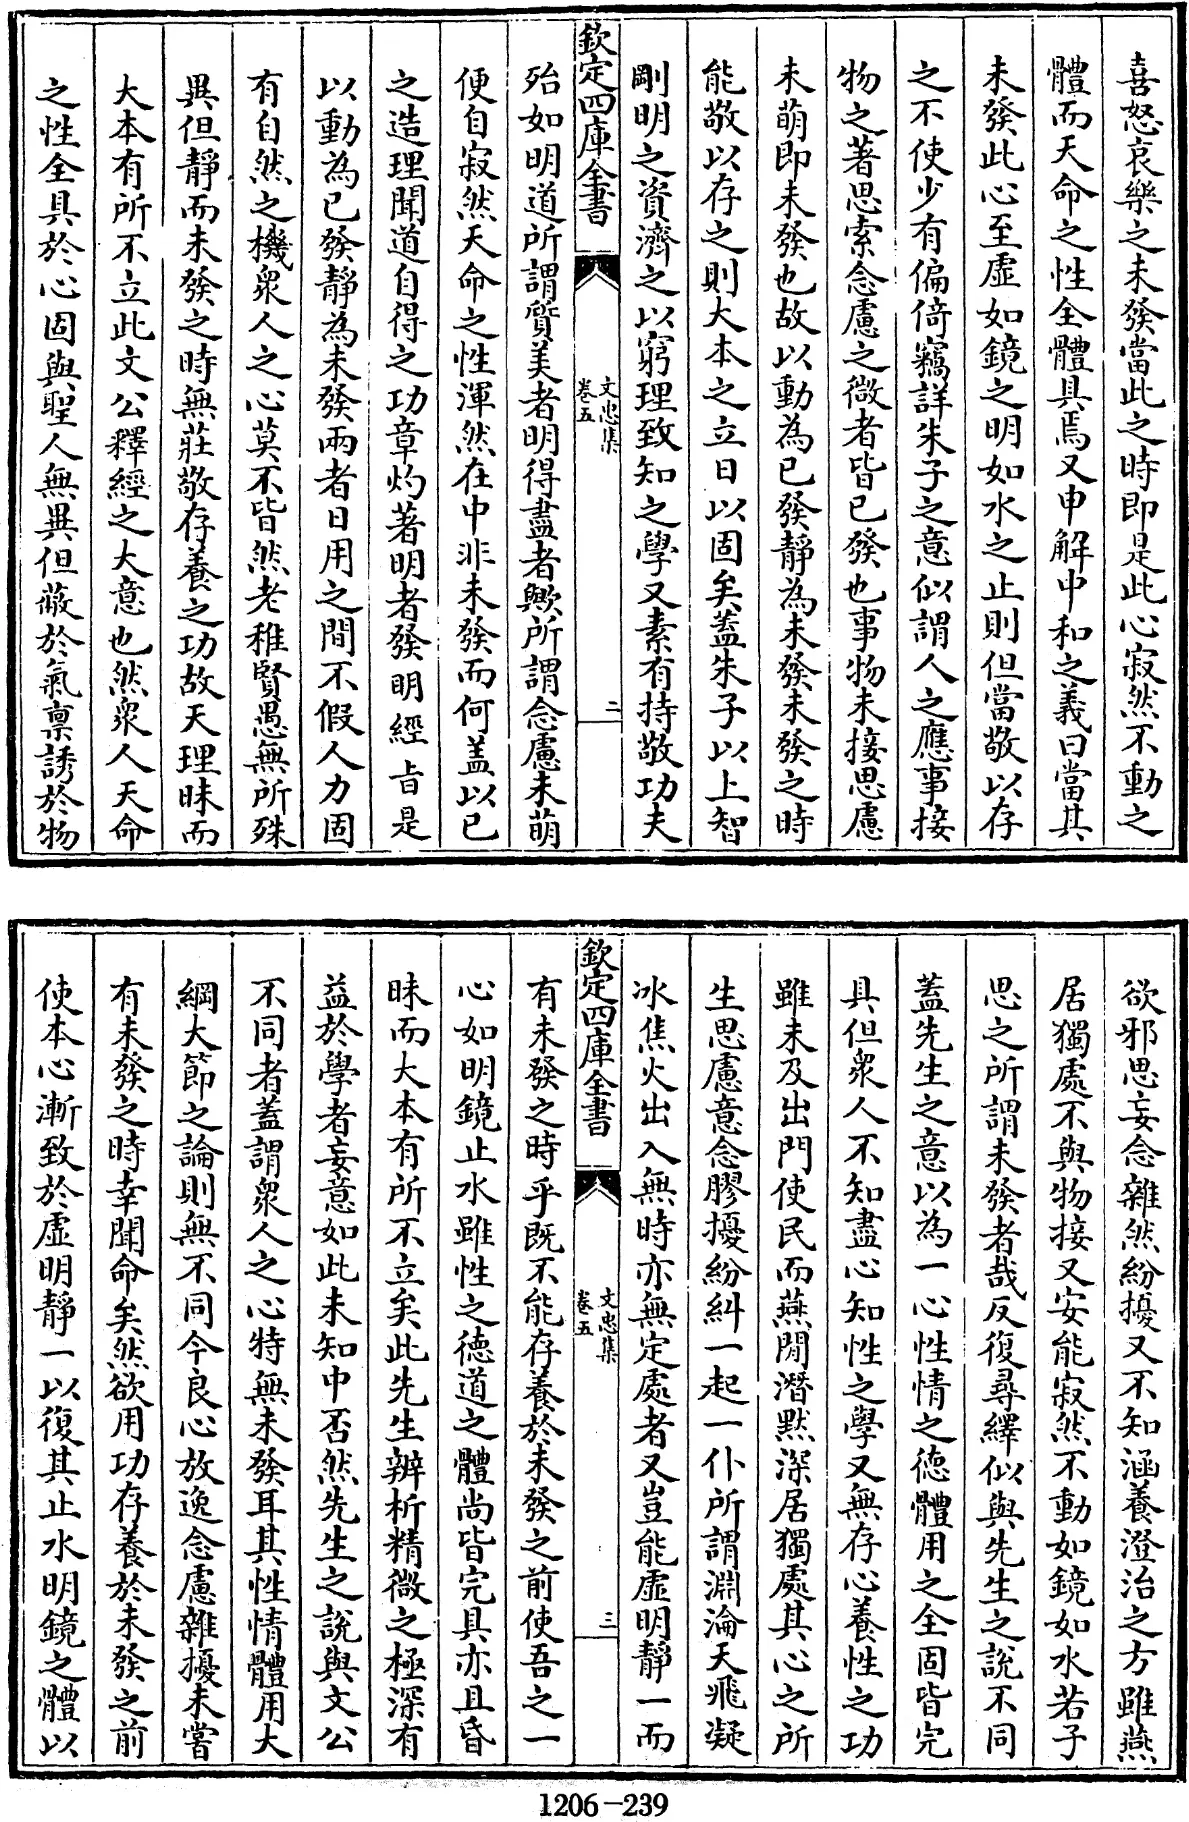 喜怒哀樂之未發當此之時即是此心寂然不動之
體而天命之性全體具焉又申解中和之義曰當其
未發此心至虛如鏡之明如水之止則但當敬以存
之不使少有偏倚竊詳朱子之意似謂人之應事接
物之著思索念慮之微者皆已發也事物未接思慮
未萌即未發也故以動為已發靜為未發未發之時
能敬以存之則大本之立日以固矣蓋朱子以上智
剛明之資濟之以窮理致知之學又素有持敬功夫
欽定四庫全書
文忠集
卷五
二
殆如明道所謂質美者明得盡者歟所謂念慮未萌
便自寂然天命之性渾然在中非未發而何蓋以已
之造理聞道自得之功章灼著明者發明經旨是
以動為已發靜為未發兩者日用之間不假人力固
有自然之機衆人之心莫不皆然老稚賢愚無所殊
異但靜而未發之時無莊敬存養之功故天理昧而
大本有所不立此文公釋經之大意也然衆人天命
之性全具於心固與聖人無異但蔽於氣稟誘於物
欲邪思妄念雜然紛擾又不知涵養澄治之方雖燕
居獨處不與物接又安能寂然不動如鏡如水若子
思之所謂未發者哉反復尋繹似與先生之說不同
蓋先生之意以為一心性情之德體用之全固皆完
具但衆人不知盡心知性之學又無存心養性之功
雖未及出門使民而燕閒潛默深居獨處其心之所
生思慮意念膠擾紛糾一起一仆所謂淵淪天飛凝
冰焦火出入無時亦無定處者又豈能虛明靜一而
欽定四庫全書
文忠集
卷五
三
有未發之時乎既不能存養於未發之前使吾之一
心如明鏡止水雖性之德道之體尚皆完具亦且昏
昧而大本有所不立矣此先生辨析精微之極深有
益於學者妄意如此未知中否然先生之說與文公
不同者蓋謂衆人之心特無未發耳其性情體用大
綱大節之論則無不同今良心放逸念慮雜擾未嘗
有未發之時幸聞命矣然欲用功存養於未發之前
使本心漸致於虛明靜一以復其止水明鏡之體以
1206-239